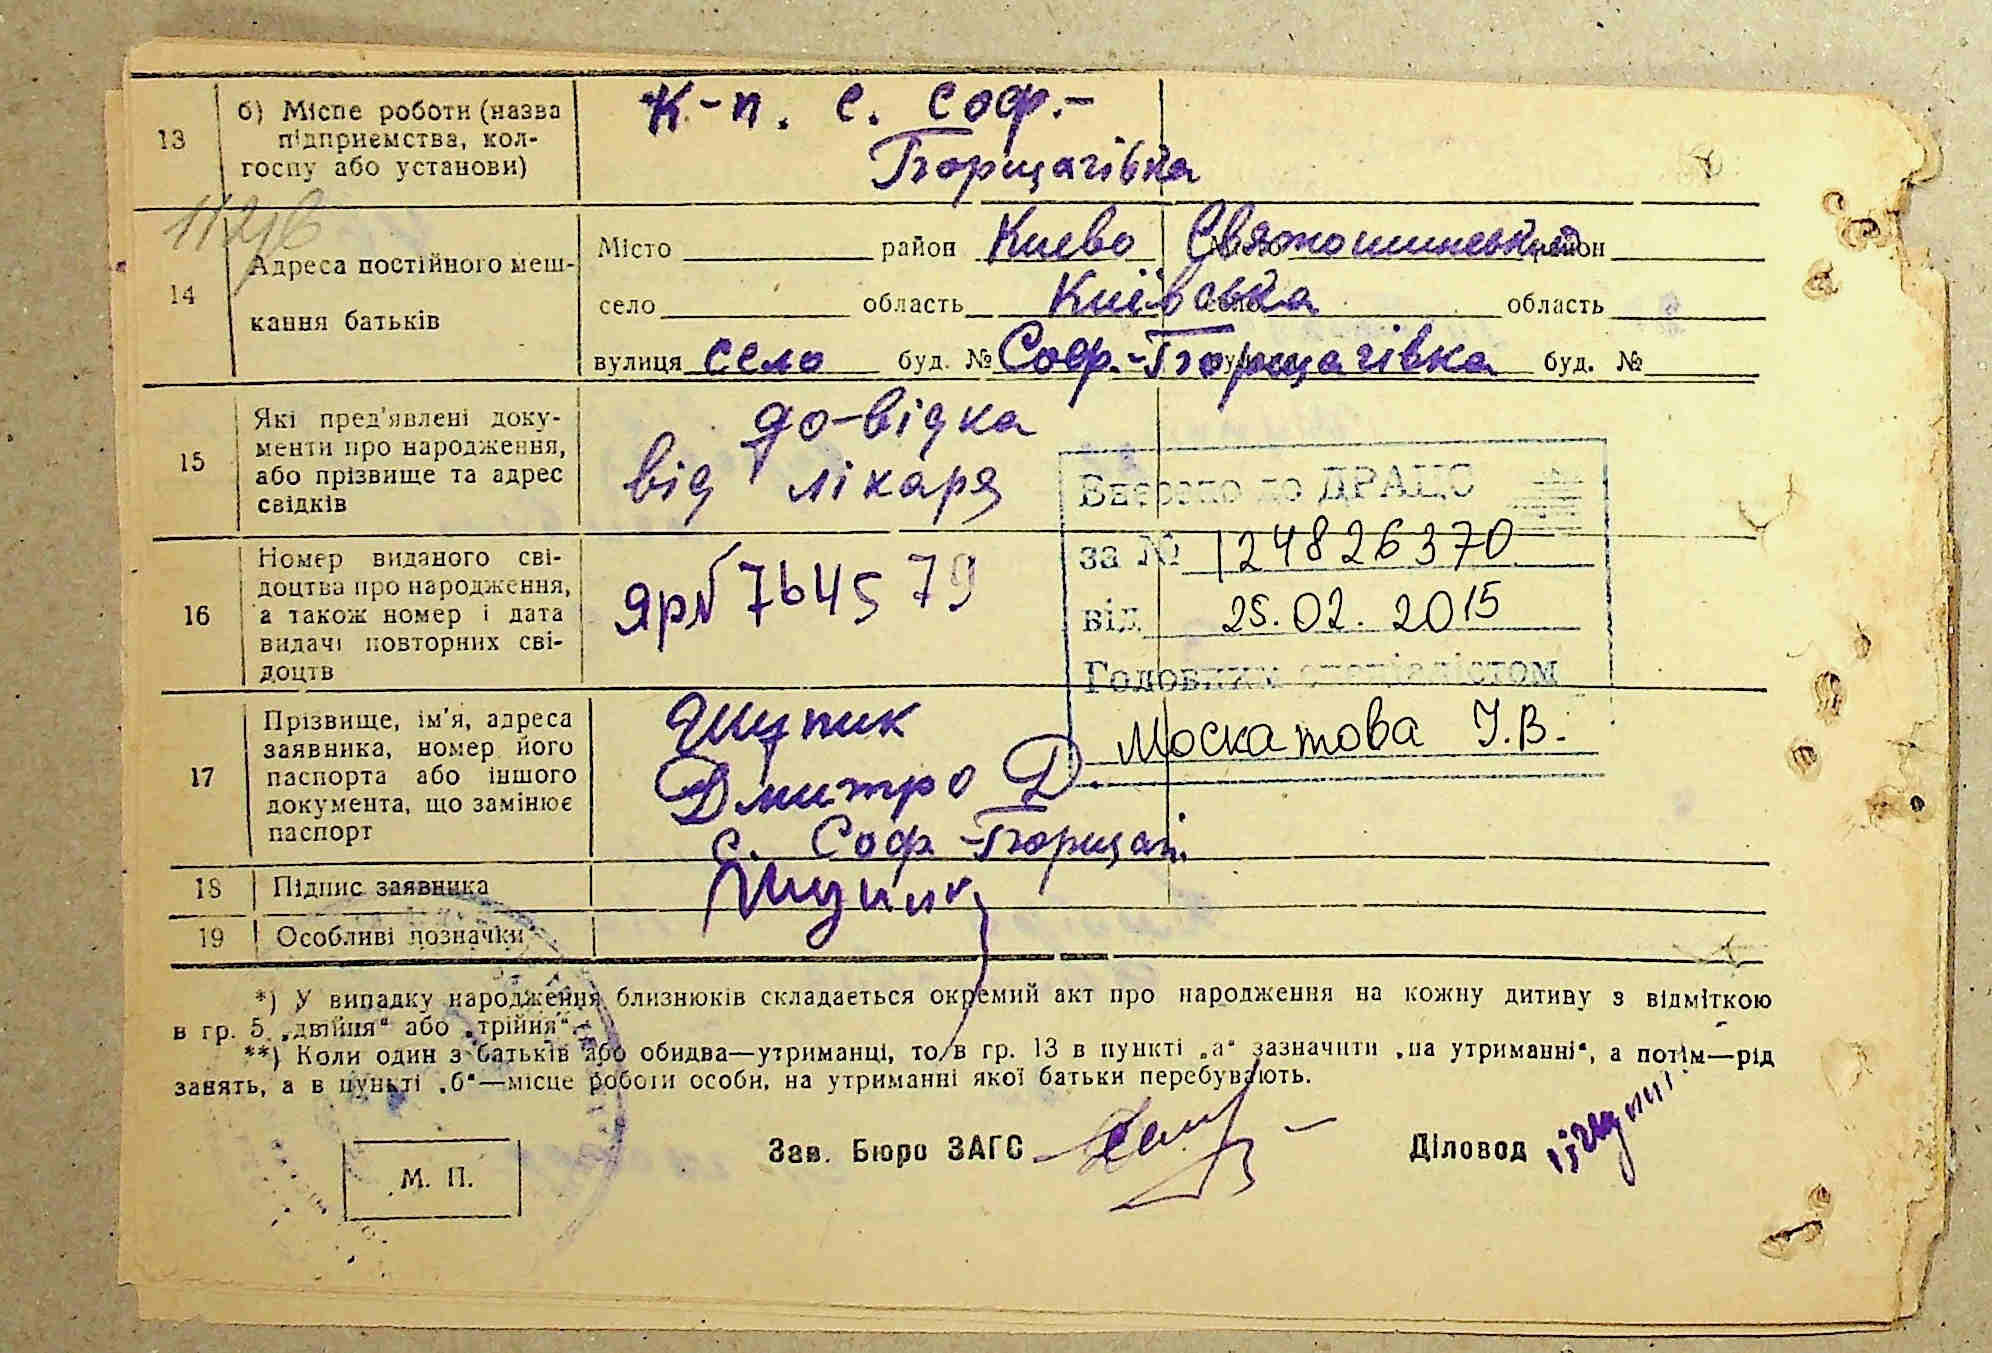 13
б) Місце роботи (назва
підприємства, кол-
госпу або установи)
К-п. с. Соф.-
Борщагівка
14
Адреса постійного меш-
кання батьків
Місто район Києво Святошинський район
село область Київська область
вулиця село буд. № Соф.-Борщагівка буд. №
15
Які пред'явлені доку-
менти про народження,
або прізвище та адрес
свідків
до-відка
від лікаря
16
Номер виданого сві-
доцтва про народження,
а також номер і дата
видачі повторних сві-
доцтв
764579
Внесено до ДРАЦС
за № 124826370
від 25.02.2015
Головним спеціалістом
Москатова І.В.
17
Прізвище, ім'я, адреса
заявника, номер його
паспорта або іншого
документа, що замінює
паспорт
Дмитро Д.
с. Соф.-Борщаг.
18
Підпис заявника
19
Особливі позначки
*) У випадку народження близнюків складається окремий акт про народження на кожну дитину з відміткою
в гр. 5 „двійня“ або „трійня“.
**) Коли один з батьків або обидва—утриманці, то в гр. 13 в пункті „а“ зазначити „на утриманні“, а потім—рід
занять, а в пункті „б“—місце роботи особи, на утриманні якої батьки перебувають.
М. П.
Зав. Бюро ЗАГС
Діловод